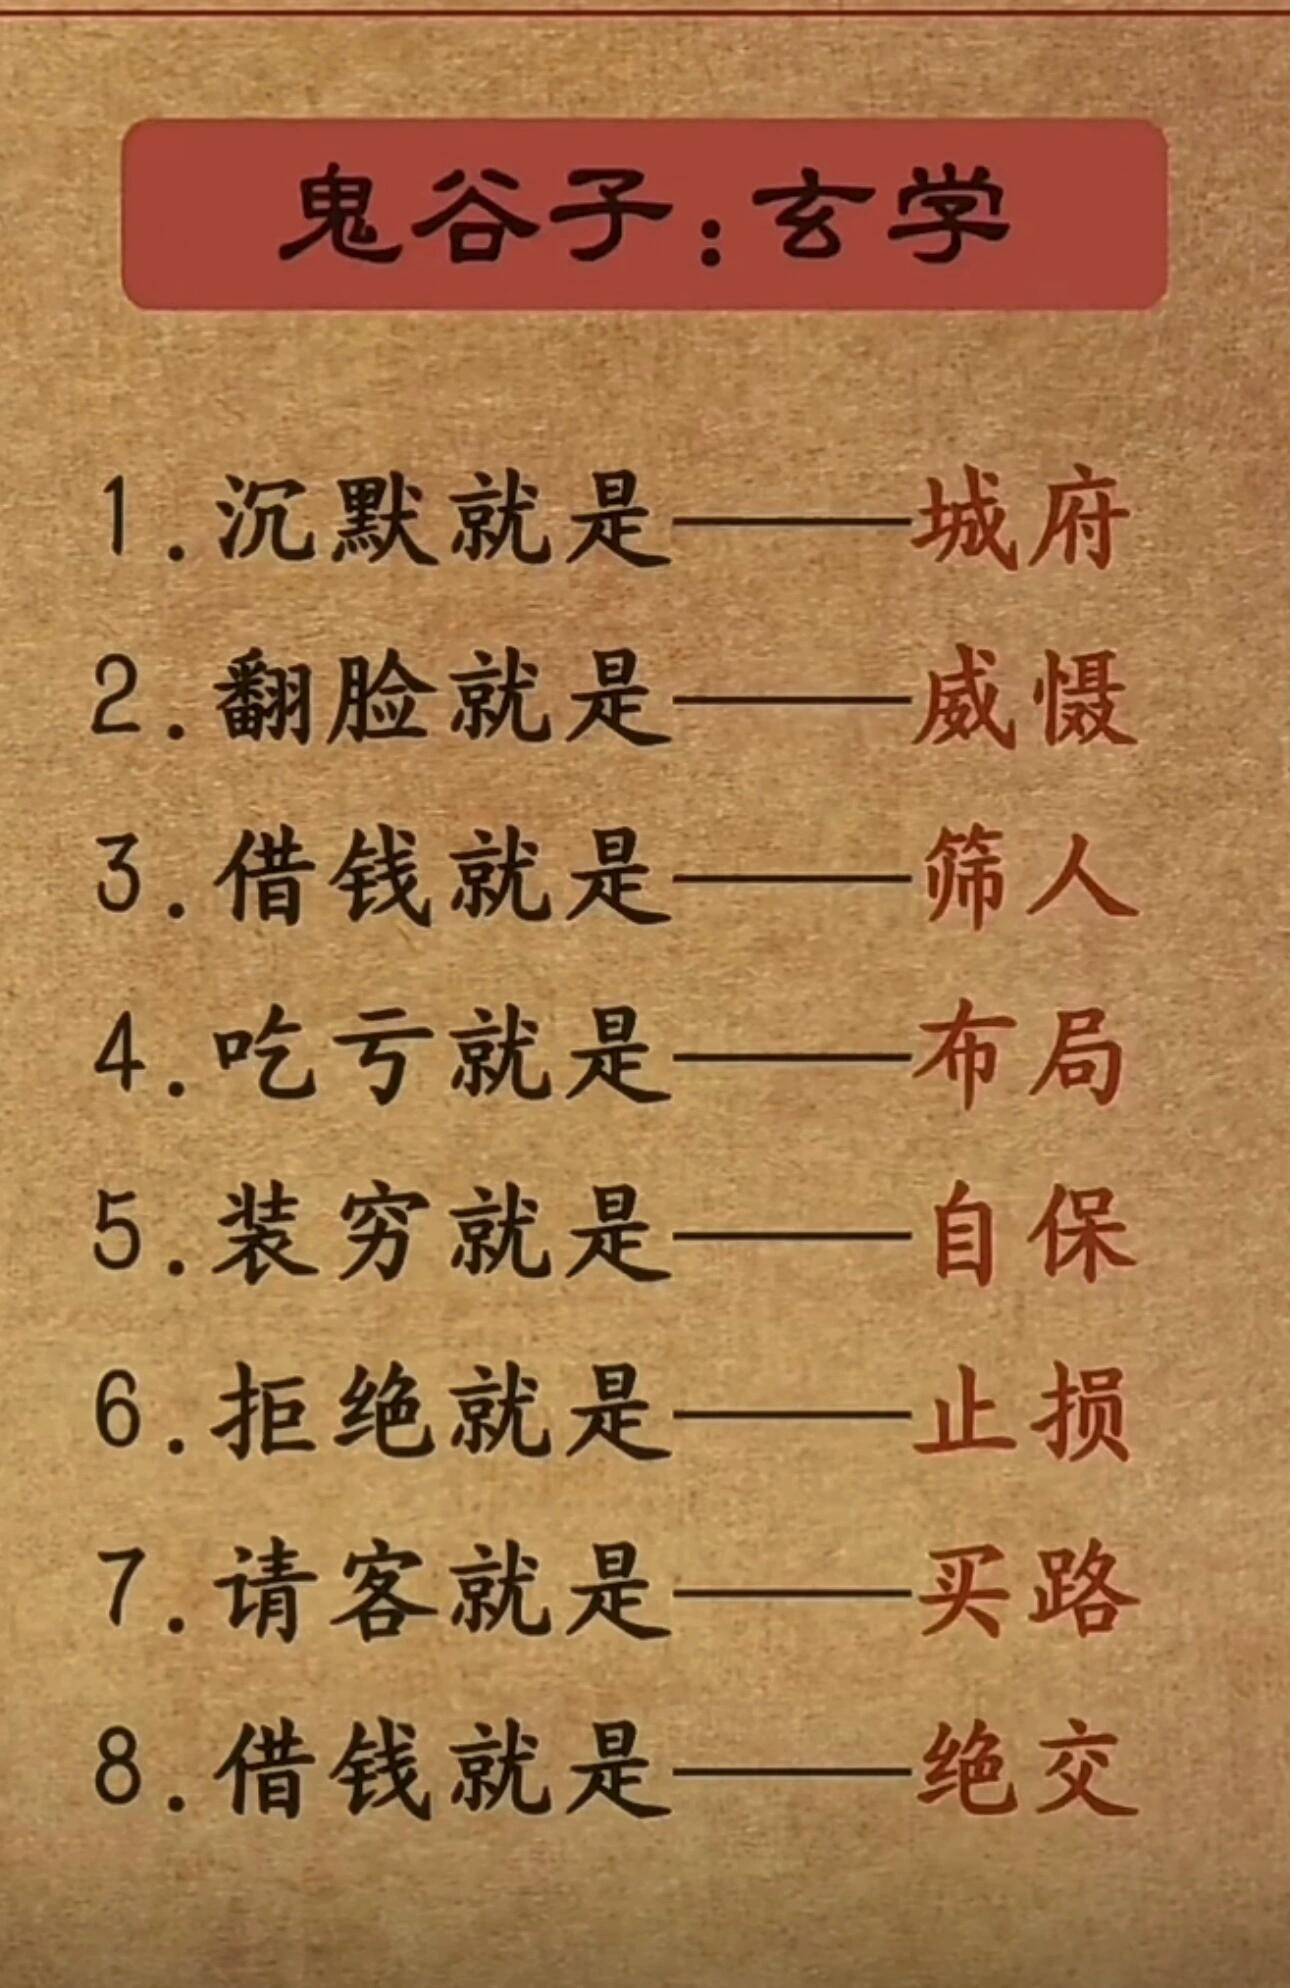 鬼谷子：玄学
1.沉默就是——城府
2.翻脸就是——威慑
3.借钱就是——筛人
4.吃亏就是——布局
5.装穷就是——自保
6.拒绝就是——止损
7.请客就是——买路
8.借钱就是——绝交